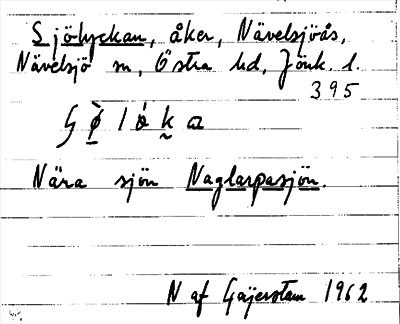 Sjölyckan, åker, Nävelsjöås,
Nävelsjö sn, Östra hd, Jönk. l.
395
Nära sjön Naglarpasjön.
N af Gaijerstam 1962